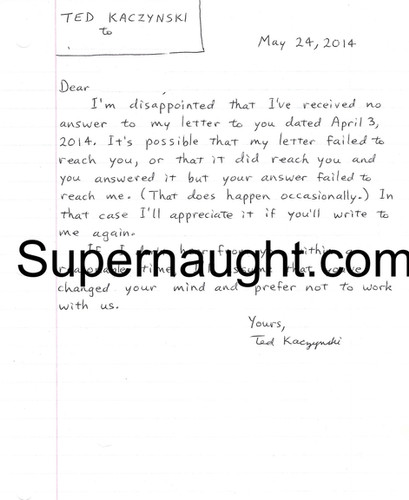 TED KACZYNSKI
to
May 24, 2014
Dear
I'm disappointed that I've received no
answer to my letter to you dated April 3,
2014. It's possible that my letter failed to
reach you, or that it did reach you and
you answered it but your answer failed to
reach me. (That does happen occasionally.) In
that case I'll appreciate it if you'll write to
me again.
If I don't hear from you within a
Supernaught.com
reasonable time, I'll assume that you've
changed your mind and prefer not to work
with us.
Yours,
Ted Kaczynski